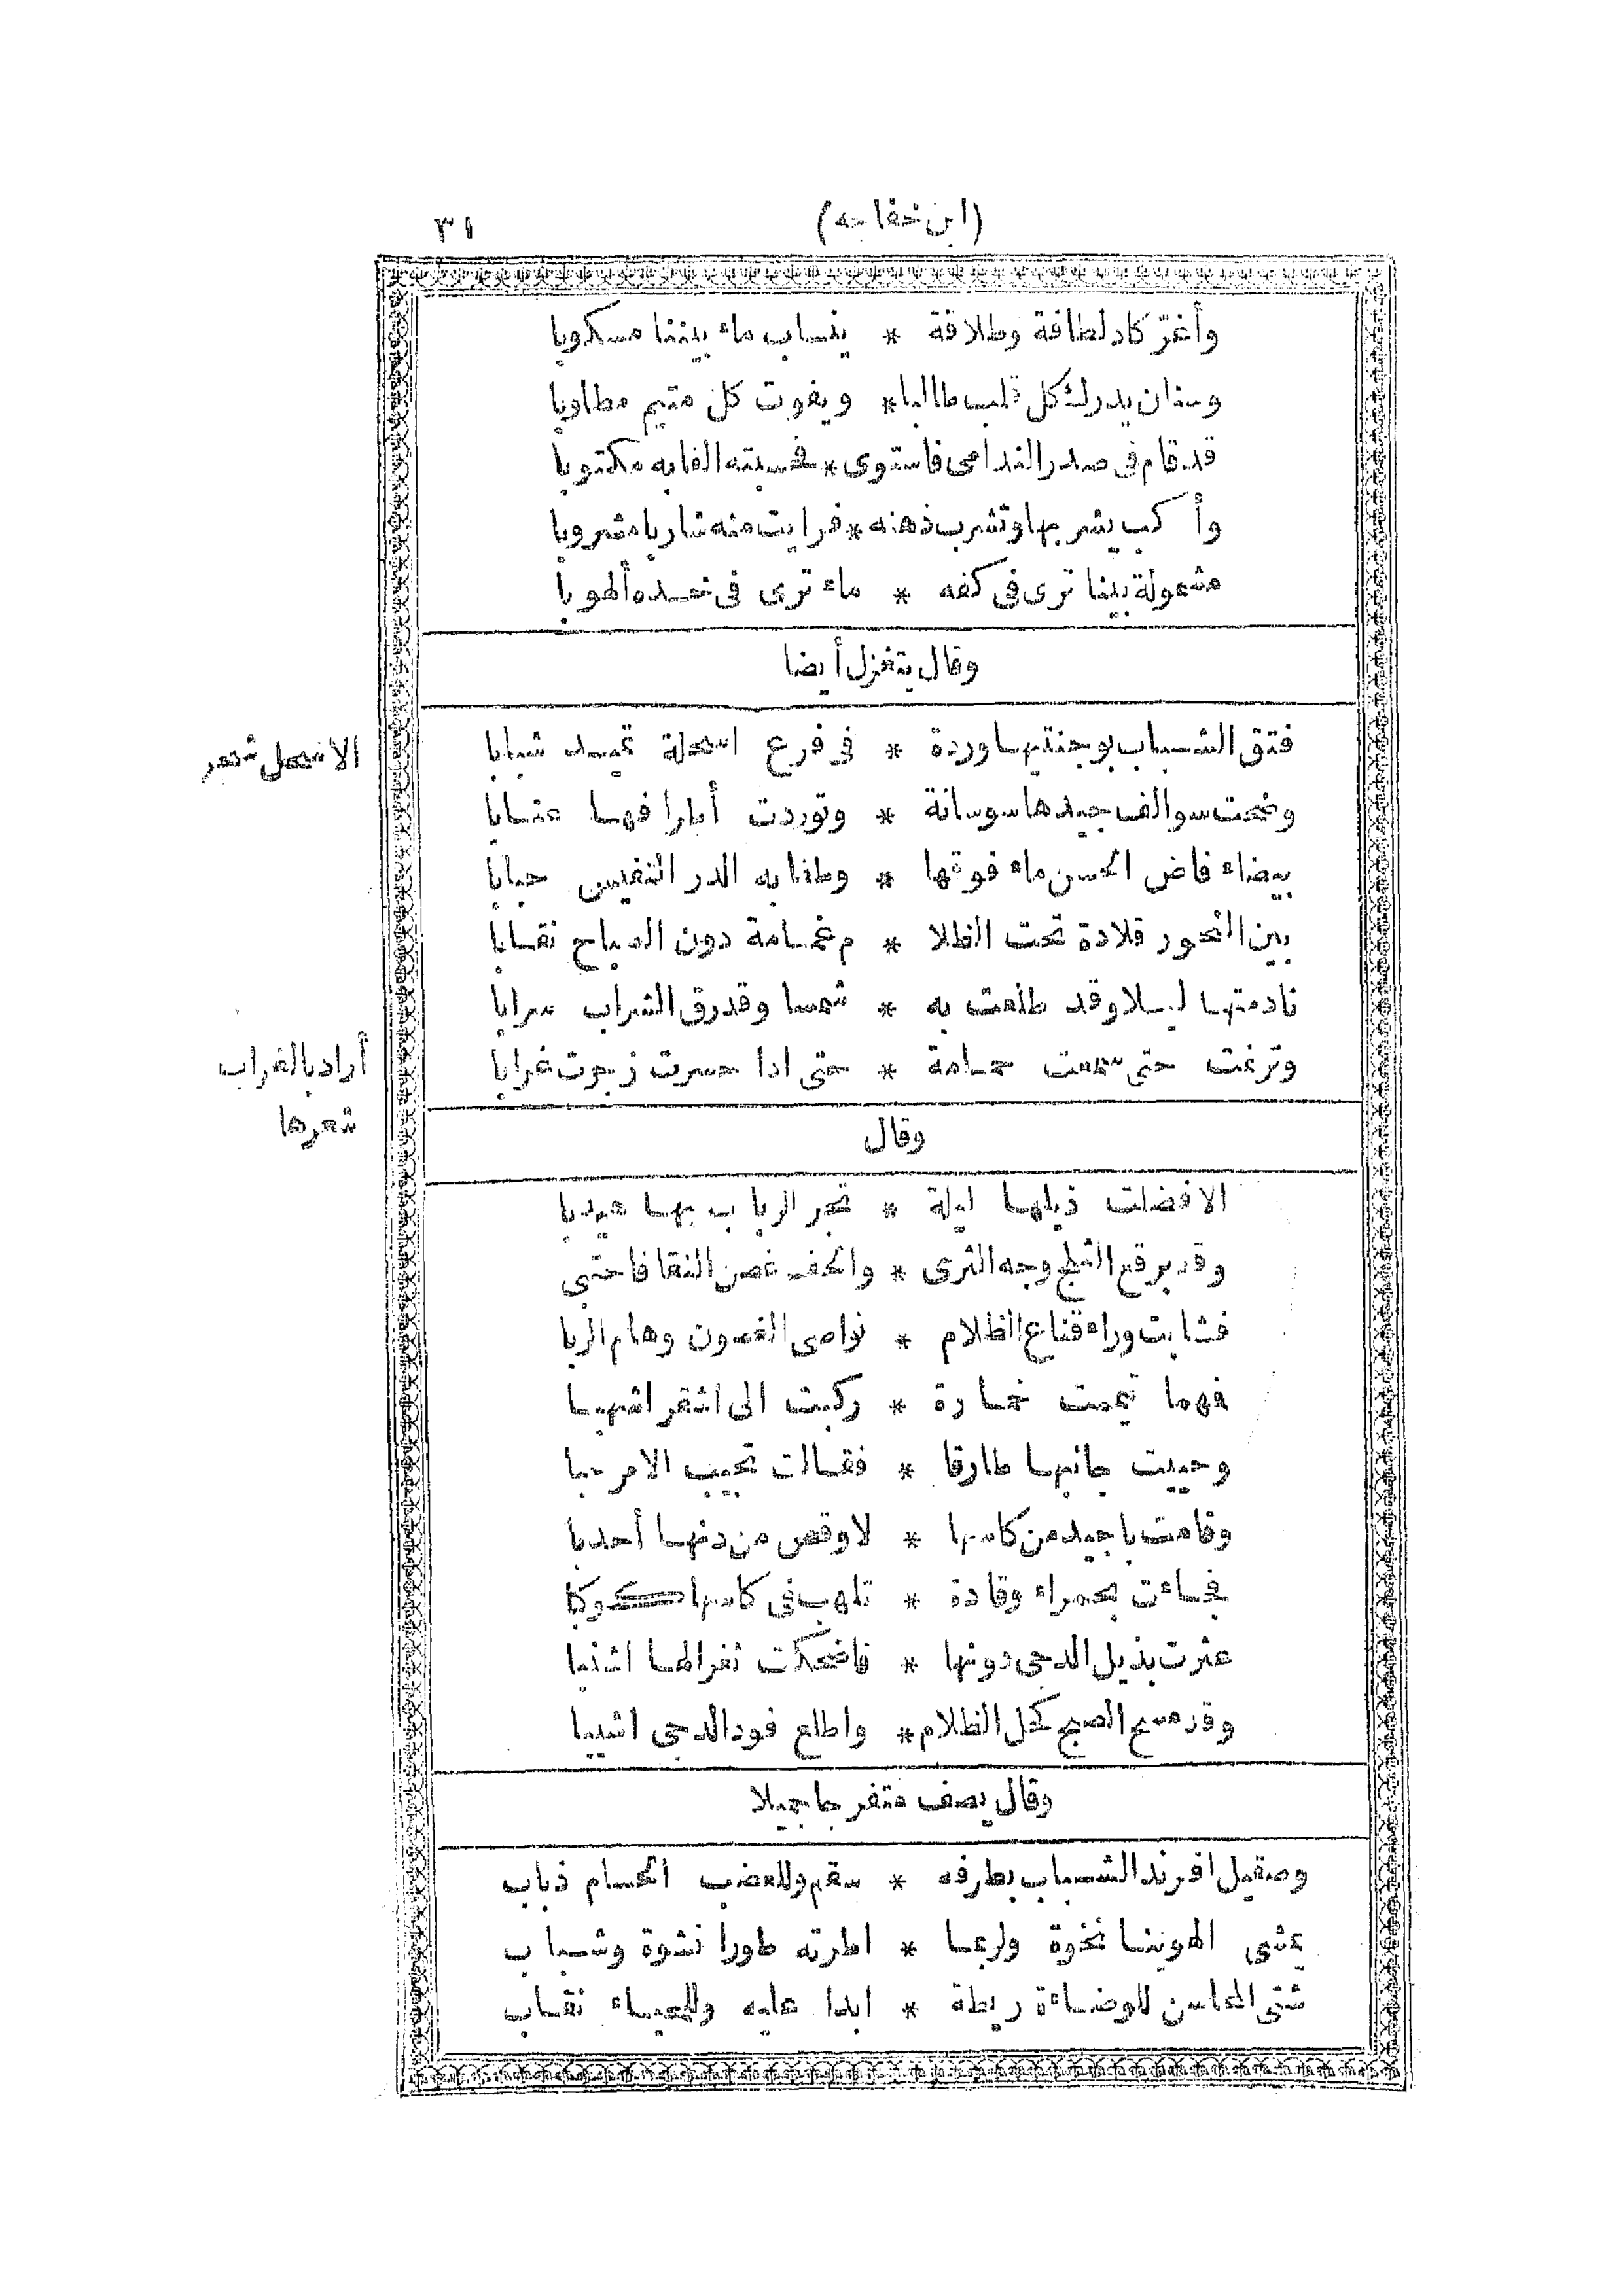 (ابن خفاجه) ٣١
وأغرّ كاد لطافة وطلاقة * ينساب ماء بيننا مسكوبا
وسنان يدرك كل قلب طالبا * ويفوت كل متيم مطلوبا
قد قام فى صدر الندامى فاستوى * فحسبته الفا به مكتوبا
وأكب يشربها وتشرب ذهنه * فرايت منه شاربا مشروبا
مشمولة بينا ترى فى كفه * ماء ترى فى خده ألهوبا
وقال يتغزل أيضا
فتق الشباب بوجنتيها وردة * فى فرع اسحلة تميد شبابا
وضحت سوالف جيدها سوسانة * وتوردت أطرافها عنابا
بيضاء فاض الحسن ماء فوقها * وطفا به الدر النفيس حبابا
بين النحور قلادة تحت الظلا * م غمامة دون الصباح نقابا
نادمتها ليلا وقد طلعت به * شمسا وقد رق الشراب سرابا
وترنمت حتى سمعت حمامة * حتى اذا حسرت زجرت غرابا
الاسحل شجر
أراد بالغراب
شعرها
وقال
الا فضلت ذيلها ليلة * تجر الرباب بها هيدبا
وقد برقع الثلج وجه الثرى * والحف غصن النقا فاحتبى
فشابت وراء قناع الظلام * نواصى الغصون وهام الربا
فهما تيممت خمارة * ركبت الى اشقر اشهبا
وحييت جانبها طارقا * فقالت تجيب الا مرحبا
وقامت باجيد من كاسها * لاوقص من دنها أحدبا
فجاءت بحمراء وقادة * تلهب فى كاسها كوكبا
عثرت بذيل الدجى دونها * فاضحكت ثغرا لها اشنبا
وقد مسح الصبح كحل الظلام * واطلع فود الدجى اشيبا
وقال يصف متفرجا جميلا
وصقيل افرند الشباب بطرفه * سقم وللعضب الحسام ذباب
يمشى الهوينا نخوة ولربما * اطرته طورا نشوة وشباب
شتى المحاسن للوضاءة ريطة * ابدا عليه وللحياء نقاب